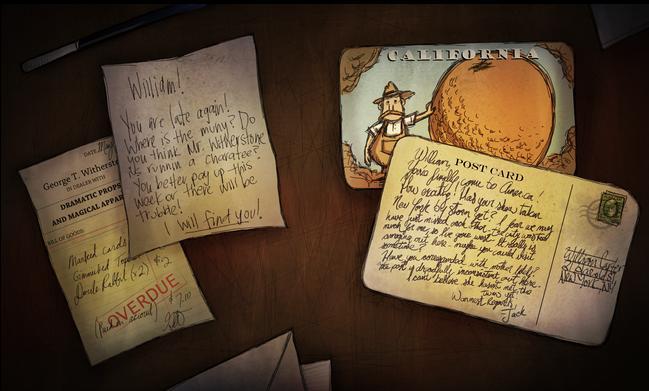 William!
You are late again!
Where is the muny? Do
you think Mr. Witherstone
is runnin a charatee?
You better pay up this
week or there will be
trobble!
I will find you!
DATE
George T. Witherst
IN DEALER WITH
DRAMATIC PROPS
AND MAGICAL APPARA
BILL OF GOODS:
Marked cards
Gimmicked Top
Dovle Rabbit (x2) $2
OVERDUE
$7.10
CALIFORNIA
POST CARD
William,
You've finally come to America!
How exciting! Has your show taken
New York by storm yet? I fear we may
have just missed each other, the city was too
much for me, so I've gone west. It really is
amazing out here - maybe you could visit
sometime?
Have you corresponded with mother lately?
The post is dreadfully inconsistent out here.
I can't believe she hasn't met the
twins yet.
Warmest Regards,
Jack
William
New York, NY